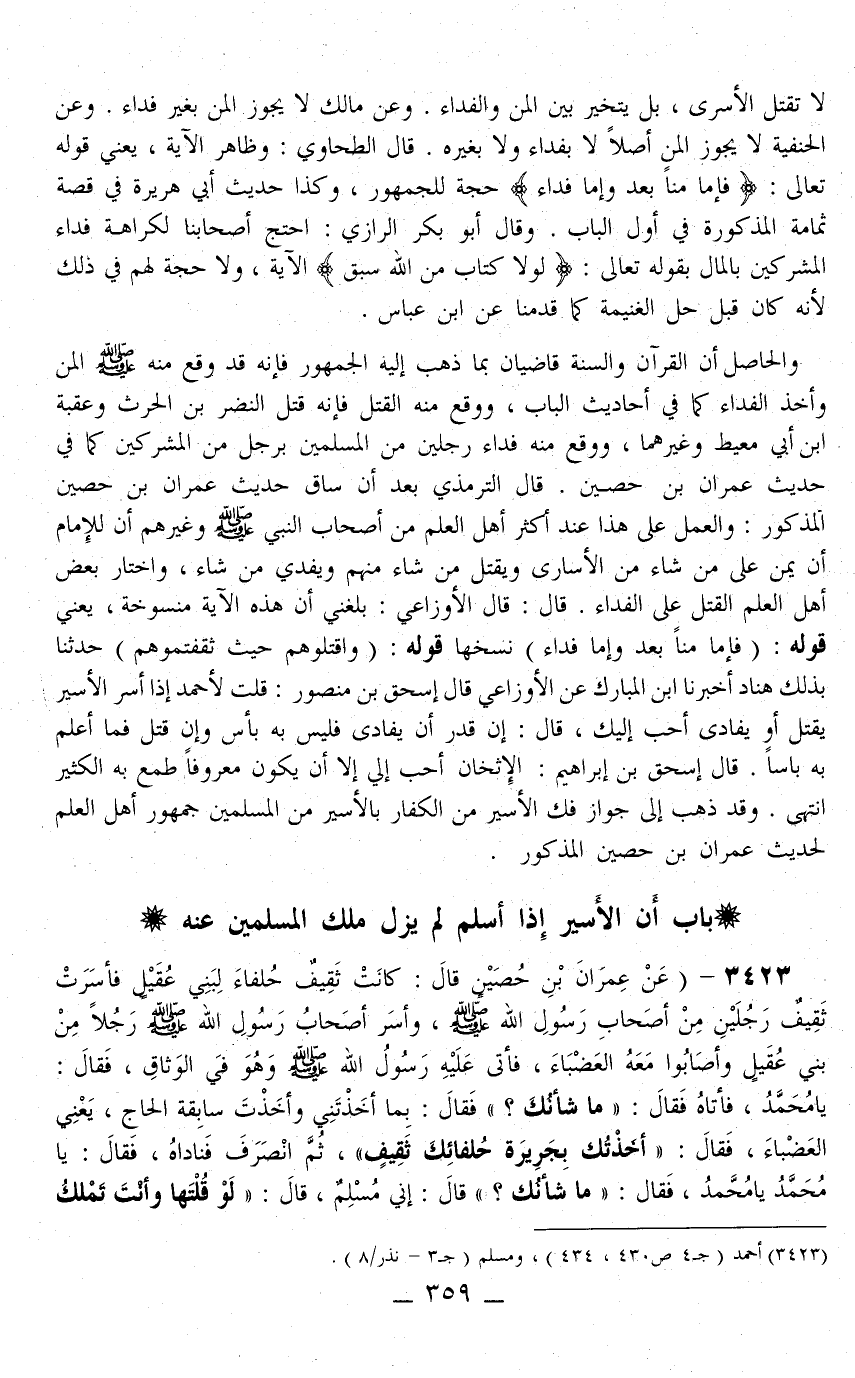 لا تقتل الأسرى ، بل يتخير بين المن والفداء . وعن مالك لا يجوز المن بغير فداء . وعن
الحنفية لا يجوز المن أصلاً لا بفداء ولا بغيره . قال الطحاوي : وظاهر الآية ، يعني قوله
تعالى : ﴿ فإما مناً بعد وإما فداء ﴾ حجة للجمهور ، وكذا حديث أبي هريرة في قصة
ثمامة المذكورة في أول الباب . وقال أبو بكر الرازي : احتج أصحابنا لكراهة فداء
المشركين بالمال بقوله تعالى : ﴿ لولا كتاب من الله سبق ﴾ الآية ، ولا حجة لهم في ذلك
لأنه كان قبل حل الغنيمة كما قدمنا عن ابن عباس .
والحاصل أن القرآن والسنة قاضيان بما ذهب إليه الجمهور فإنه قد وقع منه ﷺ المن
وأخذ الفداء كما في أحاديث الباب ، ووقع منه القتل فإنه قتل النضر بن الحرث وعقبة
ابن أبي معيط وغيرهما ، ووقع منه فداء رجلين من المسلمين برجل من المشركين كما في
حديث عمران بن حصين . قال الترمذي بعد أن ساق حديث عمران بن حصين
المذكور : والعمل على هذا عند أكثر أهل العلم من أصحاب النبي ﷺ وغيرهم أن للإمام
أن يمن على من شاء من الأسارى ويقتل من شاء منهم ويفدي من شاء ، واختار بعض
أهل العلم القتل على الفداء . قال : قال الأوزاعي : بلغني أن هذه الآية منسوخة ، يعني
قوله : ( فإما مناً بعد وإما فداء ) نسخها قوله : ( واقتلوهم حيث ثقفتموهم ) حدثنا
بذلك هناد أخبرنا ابن المبارك عن الأوزاعي قال إسحق بن منصور : قلت لأحمد إذا أسر الأسير
يقتل أو يفادى أحب إليك ، قال : إن قدر أن يفادى فليس به بأس وإن قتل فما أعلم
به باساً . قال إسحق بن إبراهيم : الإثخان أحب إلي إلا أن يكون معروفاً طمع به الكثير
انتهى . وقد ذهب إلى جواز فك الأسير من الكفار بالأسير من المسلمين جمهور أهل العلم
لحديث عمران بن حصين المذكور .
باب أن الأسير إذا أسلم لم يزل ملك المسلمين عنه
٣٤٢٣ – ( عَنْ عِمرَانَ بْنِ حُصَيْنٍ قالَ : كانَتْ ثَقِيفٌ حُلفاءَ لِبَنِي عُقَيْلٍ فأسَرَتْ
ثَقِيفٌ رَجُلَيْنِ مِنْ أصحَابِ رَسُولِ الله ﷺ ، وأسَر أصحَابُ رَسُولِ الله ﷺ رَجُلاً مِنْ
بني عُقَيلٍ وأصَابُوا مَعَهُ العَضْبَاءَ ، فأتى عَلَيْهِ رَسُولُ الله ﷺ وَهُوَ فيَ الوَثاقِ ، فَقالَ :
يامُحَمَّدُ ، فأتاهُ فَقالَ : « ما شأنُكَ ؟ » فَقالَ : بِما أخَذْتَنِي وأخَذْتَ سابِقةَ الحاج ، يَعْنِي
العَضْبَاءَ ، فَقالَ : « أخَذْتُك بِجَرِيرَة حُلفائِكَ ثَقِيفٍ» ، ثُمَّ انْصَرَفَ فَناداهُ ، فَقالَ : يا
مُحَمَّدُ يامُحَّمدُ ، فَقال : « ما شأنُك ؟ » قالَ : إني مُسْلِمٌ ، قالَ : « لَوْ قُلْتَها وأنْتَ تَمْلكُ
(٣٤٢٣) أحمد ( جـ٤ ص٤٣٠ ، ٤٣٤ ) ، ومسلم ( جـ٣ – نذر/٨ ) .
— ٣٥٩ —